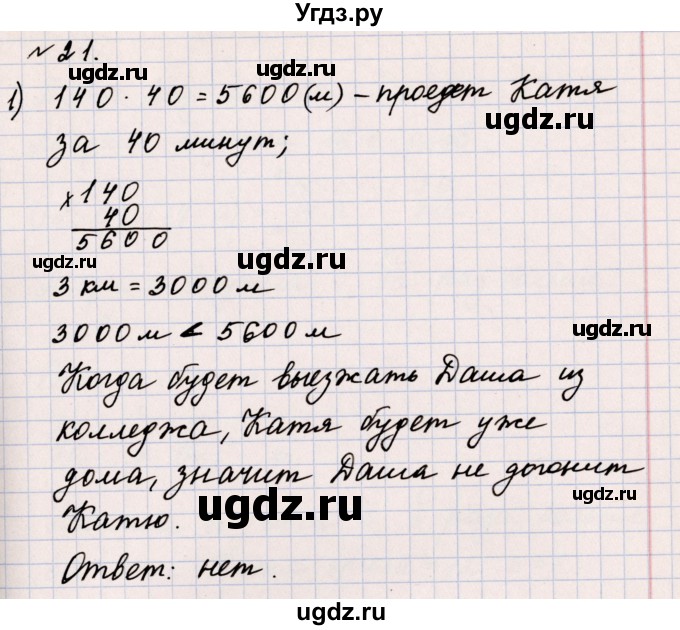 Угдз.ру
№21.
1) 140 · 40 = 5600 (м) – проедет Катя
ugdz.ru
за 40 минут;
ugdz.ru
× 140
40
5600
ugdz.ru
ugdz.ru
3 км = 3000 м
3000 м < 5600 м
ugdz.ru
Когда будет выезжать Даша из
колледжа, Катя будет уже
дома, значит Даша не догонит
ugdz.ru
Катю.
ugdz.ru
Ответ: нет.
ugdz.ru